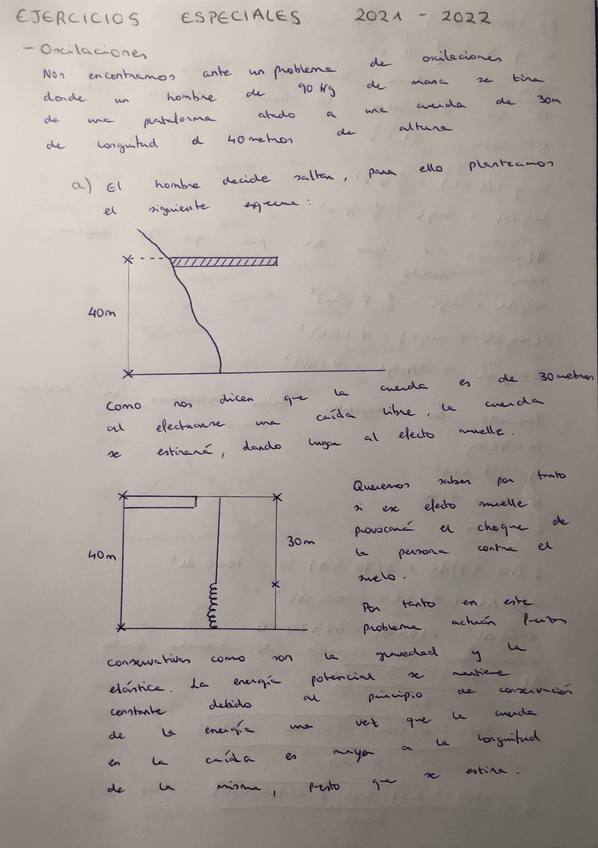 EJERCICIOS ESPECIALES 2021 - 2022
- Oscilaciones
Nos encontramos ante un problema de oscilaciones
donde un hombre de 90 Kg de masa se tira
de una plataforma atado a una cuerda de 30m
de longuitud a 40 metros de altura
a) El hombre decide saltar, para ello planteamos
el siguiente esquema:
40m
Como nos dicen que la cuerda es de 30 metros
al efectuarse una caída libre, la cuerda
se estirará, dando lugar al efecto muelle.
Queremos saber por tanto
si ese efecto muelle
provocará el choque de
la persona contra el
suelo.
40m
30m
Por tanto en este
problema actúan fuerzas
conservativas como son la gravedad y la
elástica. La energía potencial se mantiene
constante debido al principio de conservación
de la energía una vez que la cuerda
en la caída es mayor a la longuitud
de la misma, puesto que se estira.